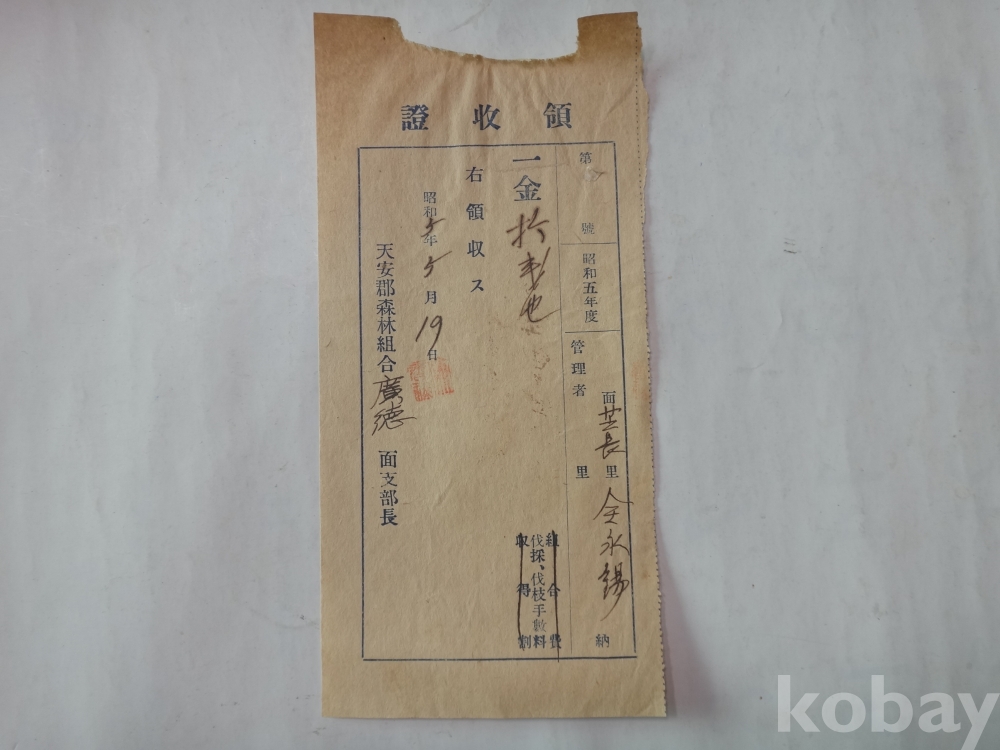 領收證
第 號
昭和五年度
面 芸長里 全永錫 納
管理者 里
一金 拾 也
組合費
伐採、伐枝手數料
取得割
右領収ス
昭和5年5月19日
天安郡森林組合廣德面支部長
kobay